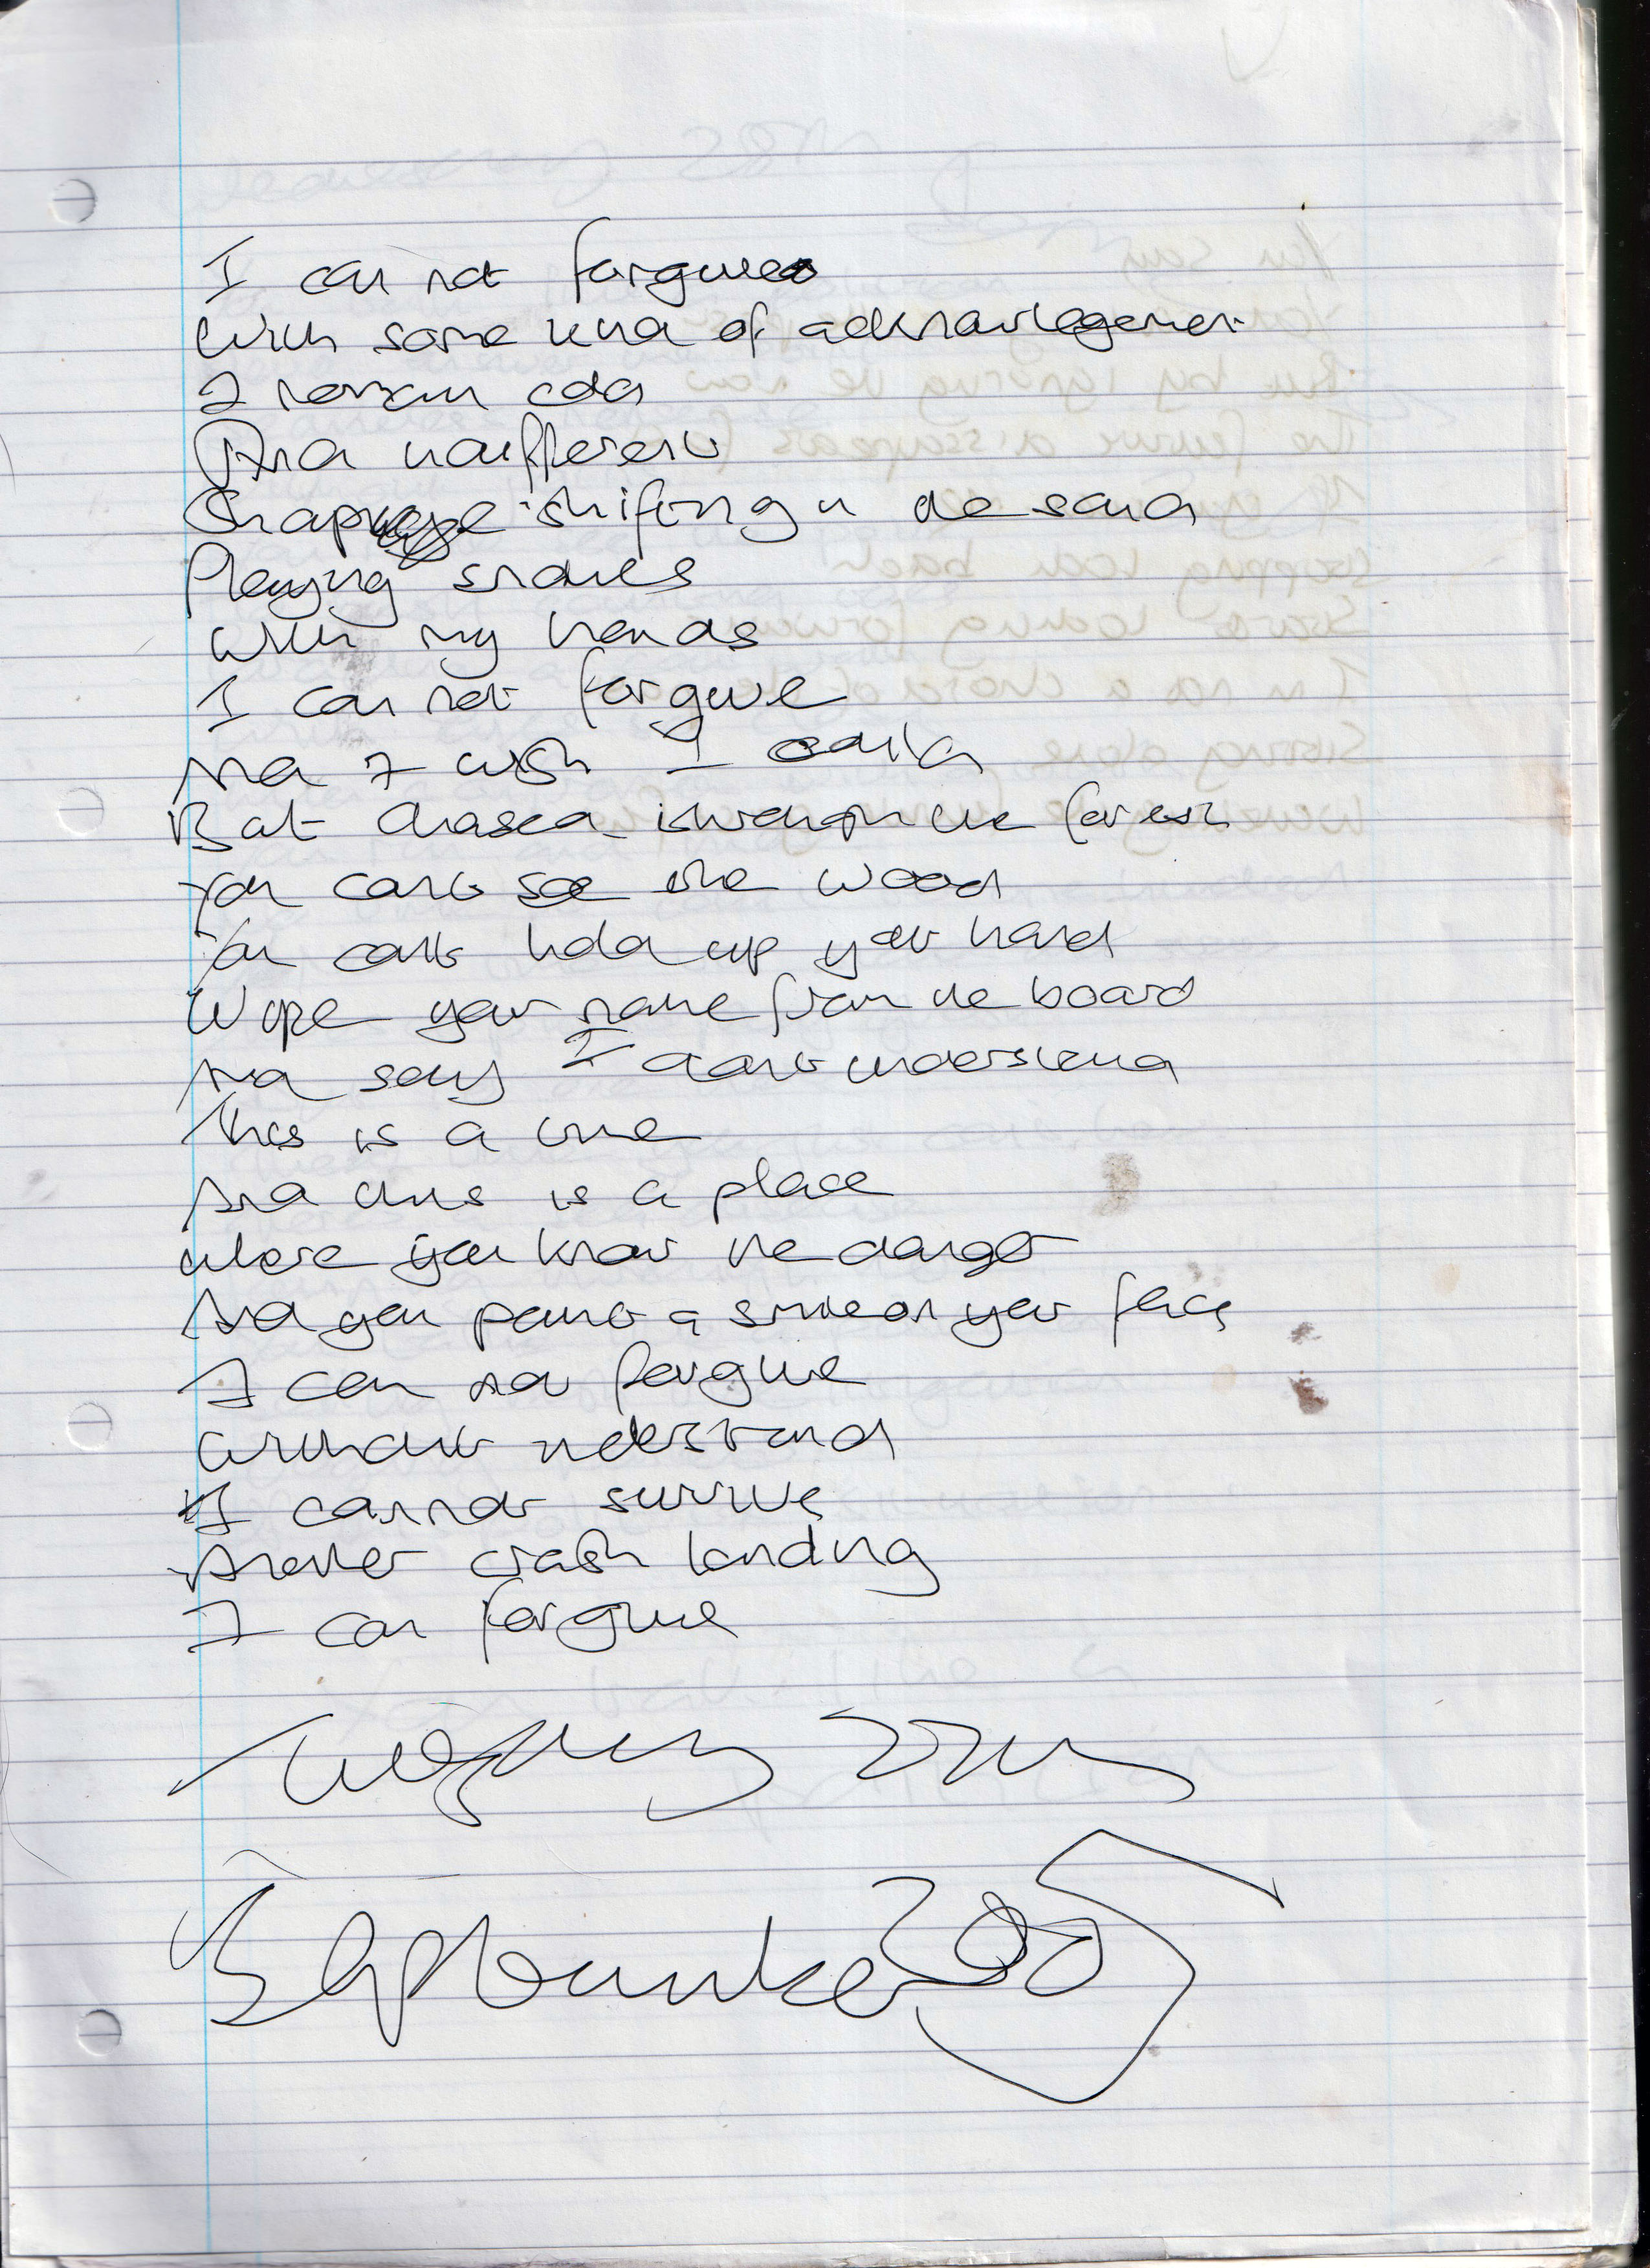 I can not forgive
With some kind of acknowlegement
I remain cold
And indifferent
Shape shifting in the sand
Playing snakes
With my hands
I can not forgive
And I wish I could
But chased through the forest
You cant see the wood
You cant hold up your hand
Wipe your name from the board
And say I dont understand
This is a time
And this is a place
Where you know the danger
And you paint a smile on your face
I can not forgive
Without understand
I cannot survive
Another crash landing
I can forgive
Tuesday 27th
September 2005